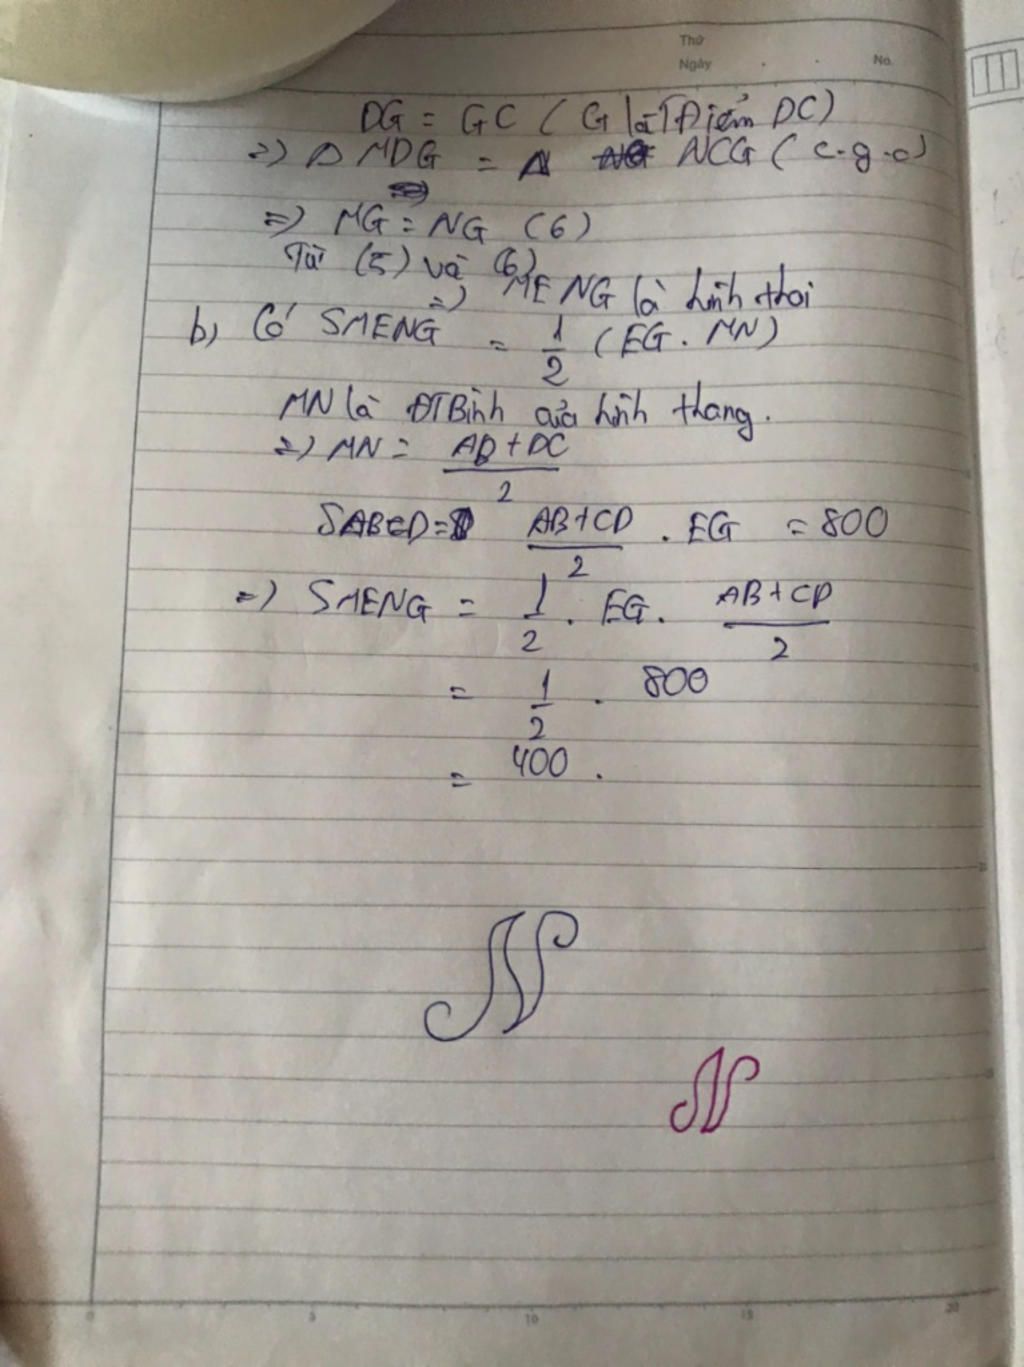 Thứ
Ngày No.
DG = GC ( G là TĐiểm DC)
=> Δ MDG = Δ NCG ( c.g.c)
=> MG = NG (6)
Từ (5) và (6)
=> MENG là hình thoi
b) Có SMENG = 1/2 (EG . MN)
MN là ĐTBình của hình thang.
=> MN = AB + DC / 2
SABCD = AB+CD / 2 . EG = 800
=> SMENG = 1/2 . EG . AB+CD / 2
= 1/2 . 800
= 400 .
N
N
0 5 10 15 20